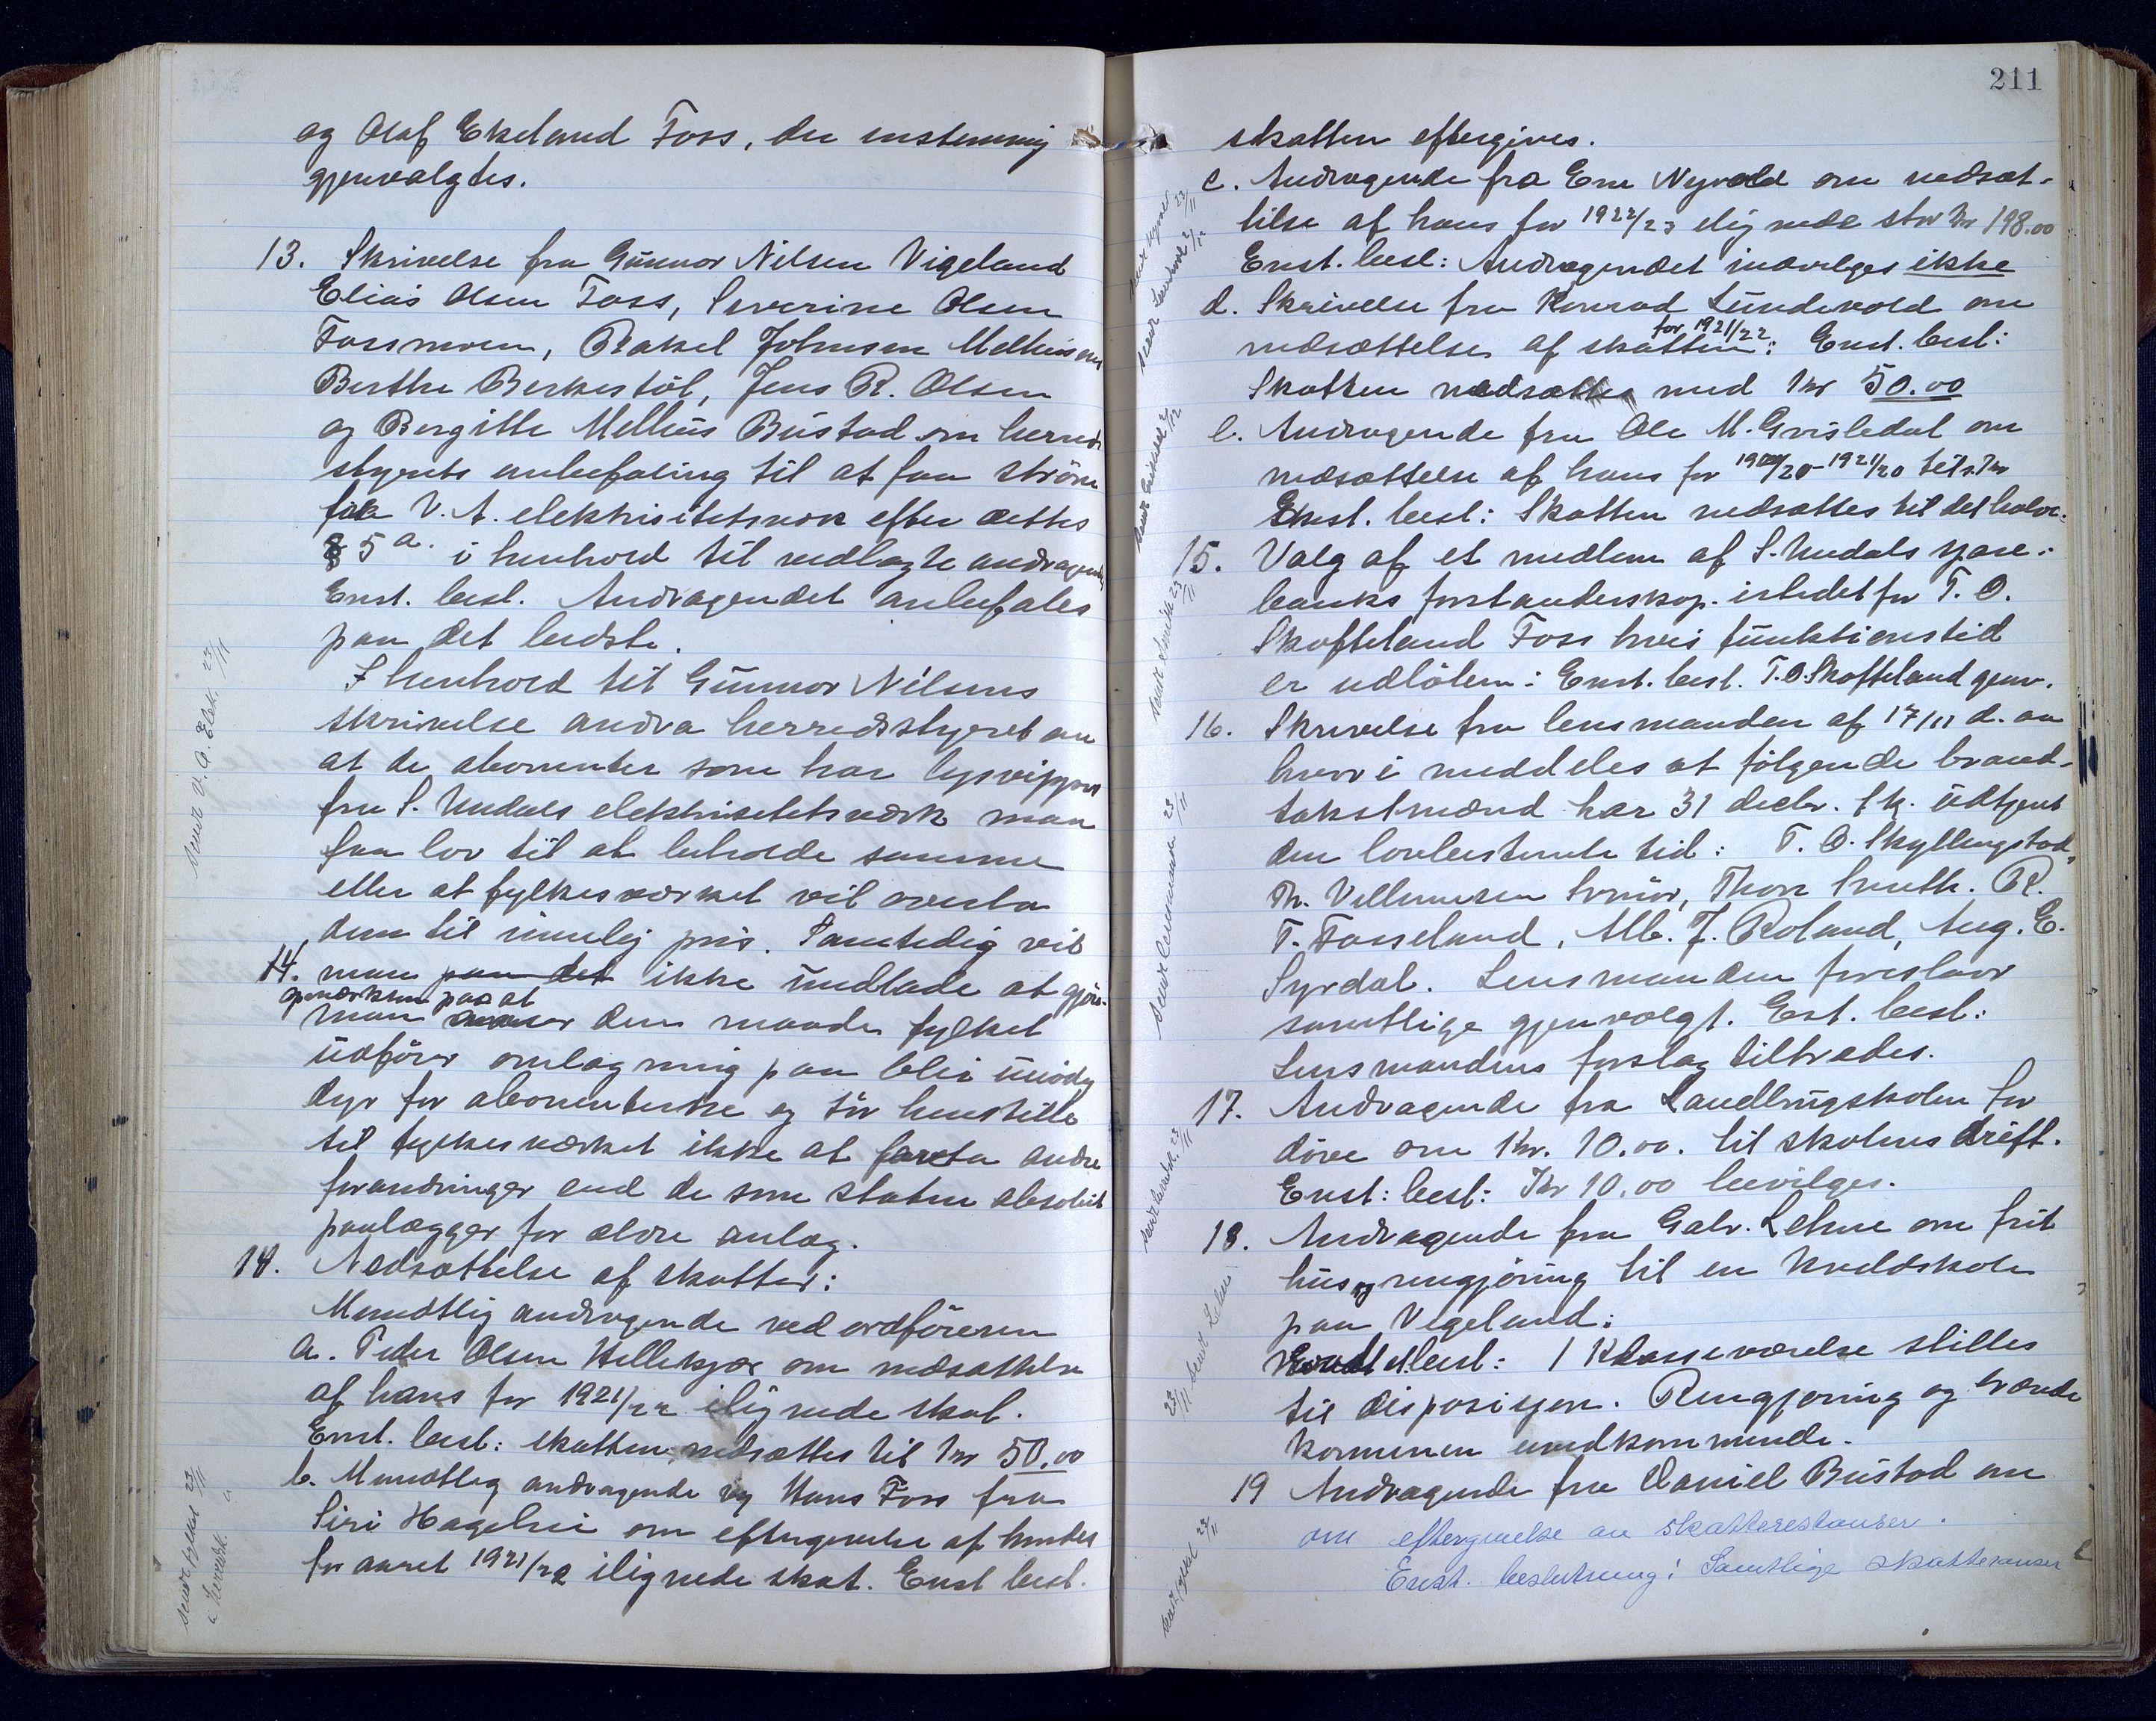 og Olaf Ekeland Foss, der enstemmig
gjenvalgtes.
13. Skrivelse fra Gunvor Nilsen Vigeland
Elias Olsen Foss, Severine Olsen
Fossmoen, Rakel Johnsen Melhusmo
Berthe Berkestöl, Jens R. Olsen
og Bergitte Mellhus Bustad om herreds
styrets anbefaling til at faa ström
fra V. A. elektrisitetsverk efter dettes
§ 5 a. i henhold til vedlagte andragende
Enst. besl. Andragendet anbefales
paa det bedste.
I henhold til Gunvor Nilsens
skrivelse andra herredsstyret om
at de abonnenter som har lysvippen
fra S. Undals elektrisitetsverk maa
faa lov til at beholde samme
eller at fylkesverket vil overta
dem til rimelig pris. Samtidig vil
14. man paa det ikke undlade at gjöre
opmerksom paa at
man anser den maade fylket
udförer omlægning paa blir unödig
dyr for abonnenterne og tör henstille
til fylkesverket ikke at foreta andre
forandringer end de som staten absolut
paalægger for ældre anlæg.
14. Nedsættelse af skatter:
Mundtlig andragende ved ordföreren
a. Peder Olsen Hellekjær om nedsættelse
af hans for 1921/22 ilignede skat.
Enst. besl: skatten nedsættes til kr 50.00
b. Mundtlig andragende v/ Hans Foss fra
Siri Hagelsei om eftergivelse af hendes
for aaret 1921/22 ilignede skat. Enst besl.
sendt V. A. Elek. 23/11
sendt fylket 23/11
211
skatten eftergives.
c. Andragende fra Em Nyvold om nedsæt-
telse af hans for 1922/23 ilignede stor kr 198.00
Enst. besl: Andragendet indvilges ikke
d. Skrivelse fra Konrad Lundevold om
for 1921/22
nedsættelse af skatten: Enst. besl:
Skatten nedsættes med kr 50.00
e. Andragende fra Ole M. Grisledal om
nedsættelse af hans for
Enst. besl: Skatten nedsættes til det halve.
15. Valg af et medlem af S. Undals spare-
banks forstanderskap istedetfor T. O.
Skofteland Foss hvis funktionstid
er udlöben: Enst. besl. T. O. Skofteland gjenv.
16. Skrivelse fra lensmanden af 17/11 d. aa
hvori meddeles at fölgende brand-
takstmænd har 31 decbr. f. k. udtjent
den lovbestemte tid: T. O. Skyllingstad,
Th. Villumsen Svinör, Thor Smith. R.
T. Fasseland, Alb. J. Roland, Aug. E.
Syrdal. Lensmanden foreslaar
samtlige gjenvalgt. Est. besl:
Lensmandens forslag tiltrædes.
17. Andragende fra Landbrugskolen for
döve om Kr. 10.00. til skolens drift.
Enst: besl: Kr 10.00 bevilges.
18. Andragende fra Gabr. Lehne om frit
hus og rengjöring til en kveldskole
paa Vigeland:
Enst. besl: 1 Klasseværelse stilles
til disposisjon. Rengjöring og brænde
kommunen uvedkommende.
19 Andragende fra Daniel Bustad om
om eftergivelse av skatterestanser.
Enst. beslutning: Samtlige skatteranser
sendt lensmanden 23/11
sendt Lehne 23/11